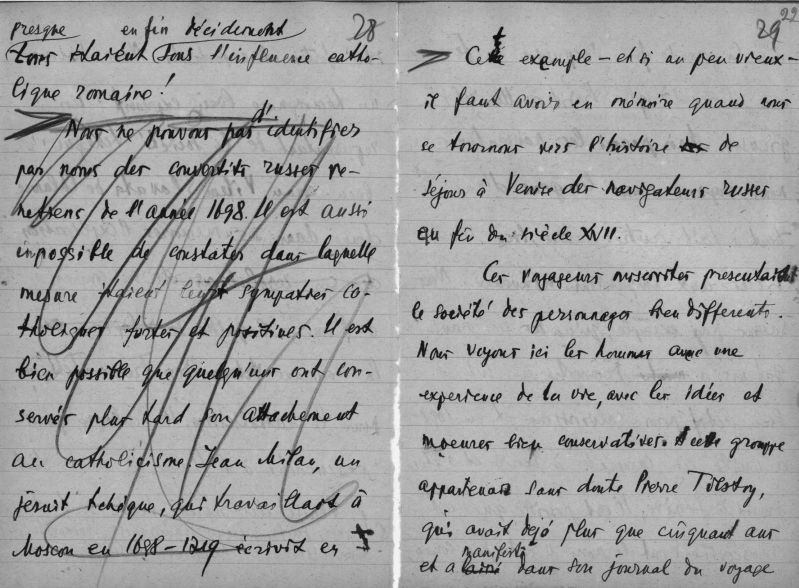 28
presque enfin décidement
tous étaient sous l'influence catho-
lique romaine!
Nous ne pouvons pas d'identifier
par noms des convertits russes ve-
netiens de l'année 1698. Il est aussi
impossible de constater dans laquelle
mesure étaient leurs sympaties ca-
tholiques fortes et positives. Il est
bien possible que quelqu'uns ont con-
servés plus tard son attachement
au catholicisme. Jean Milan, un
jésuit tchèque, qui travaillait à
Moscou en 1698–1719 écrivit en
29 22
Cet exemple – et si un peu vieux –
il faut avoir en mémoire quand nous
se tournons vers l'histoire de
séjour à Venise des navigateurs russes
en fin du siècle XVII.
Ces voyageurs moscovites presentaient
le société des personnages bien differents.
Nous voyons ici les hommes avec une
experience de la vie, avec les idées et
moeurs bien conservatives. A cette grouppe
appartenait sans doute Pierre Tolstoy,
qui avait dejó plus que cinquant ans
manifesté
et a dans son journal du voyage